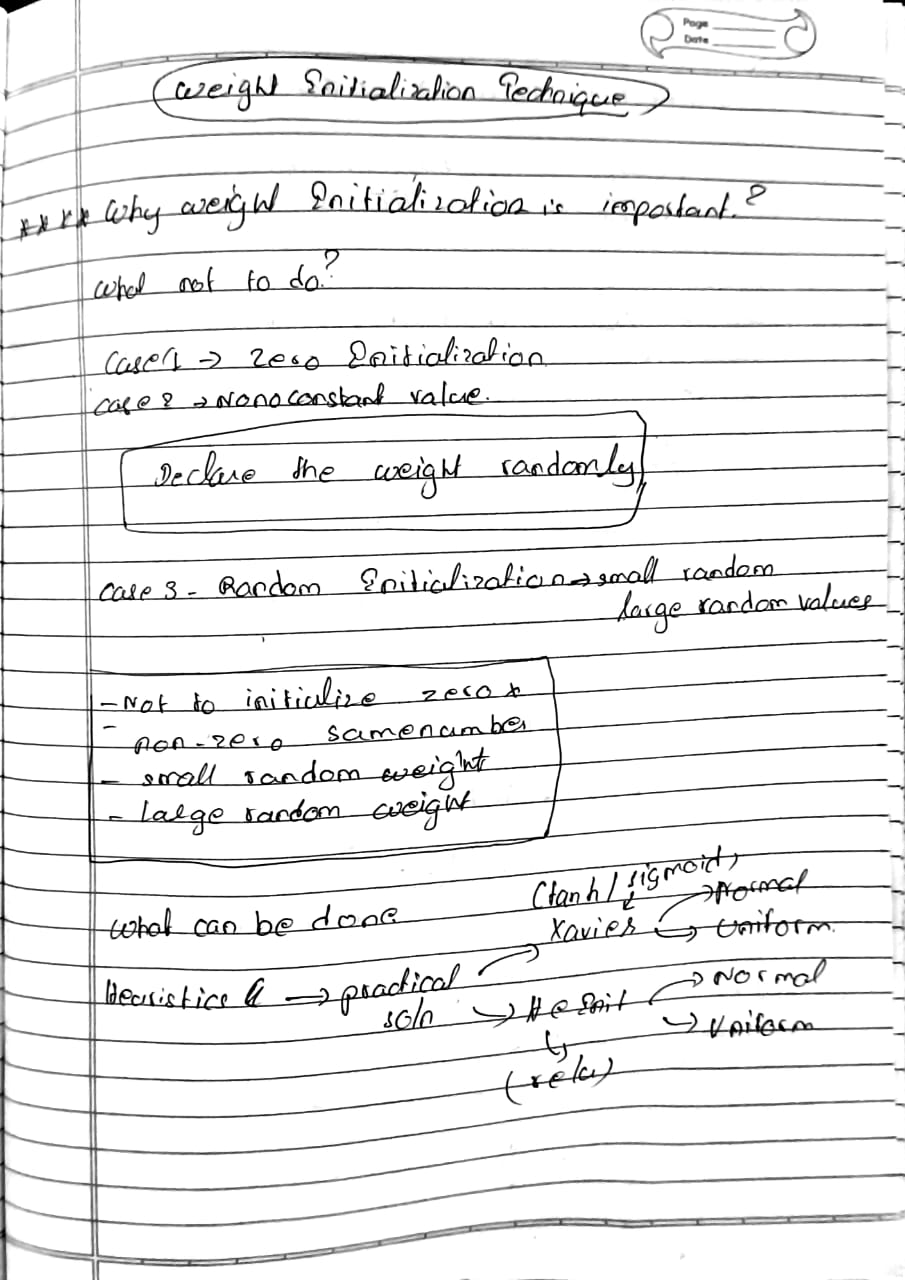 Page
Date
Weight Initialization Technique
**** Why weight Initialization is important?
What not to do?
Case 1 → Zero Initialization
Case 2 → Nonoconstant value.
Declare the weight randomly
Case 3 - Random Initialization → small random
large random values
- Not to initialize zero x
- non-zero samenumber
- small random weight
- Large random weight
(tanh / sigmoid)
What can be done Xavier → Normal
→ Uniform.
Heuristics → practical
soln → He Init → Normal
→ Uniform
(relu)